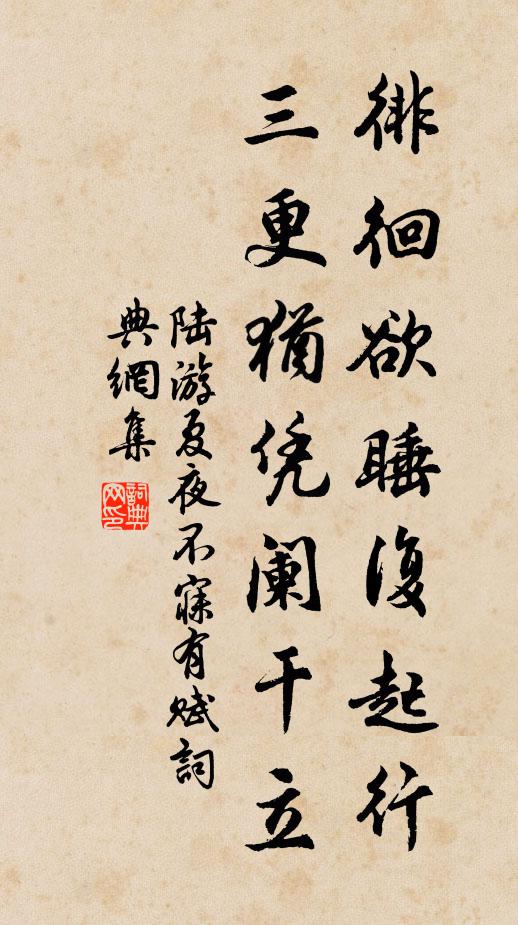 徘徊欲睡復起行
三更猶凭阑干立
陆游夏夜不寐有赋詞
典網集
詞典网印